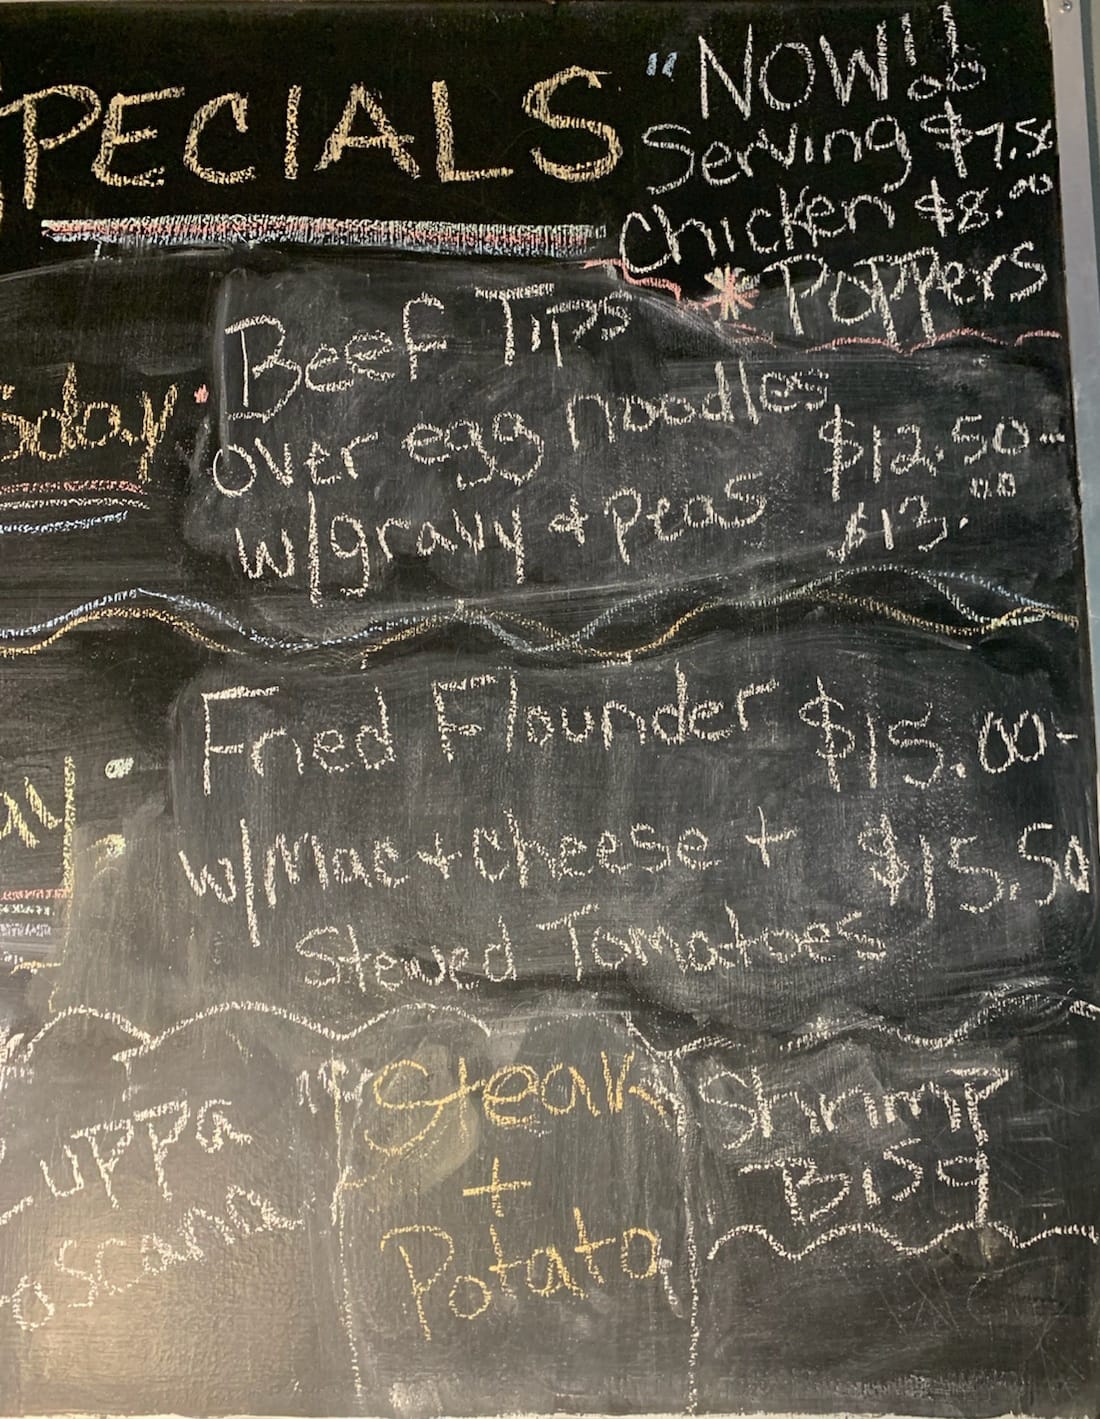 SPECIALS
"NOW!!
Serving $7.50
Chicken $8.00
* Poppers
sday
Beef Tips
over egg noodles $12.50
w/gravy & peas $13.00
Fried Flounder $15.00
w/Mac & cheese + $15.50
Stewed Tomatoes
Zuppa
Toscana
Steak
+
Potato
Shrimp
Bisq